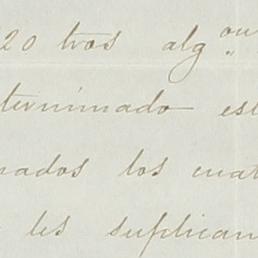 20 tros alg
terminado es
nados los cuat
les suplican